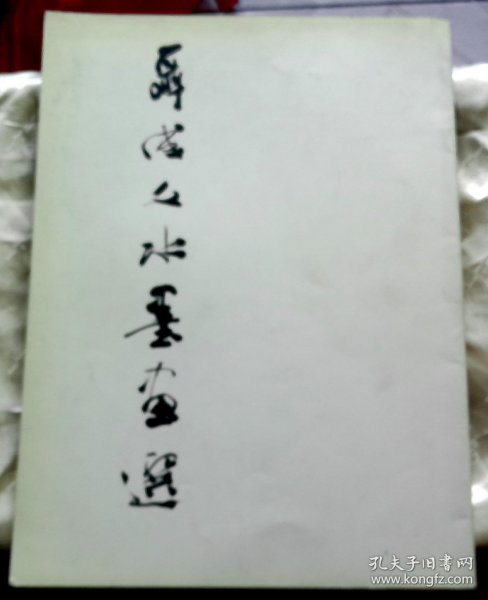 聂成文水墨画選
孔夫子旧书网
www.kongfz.com